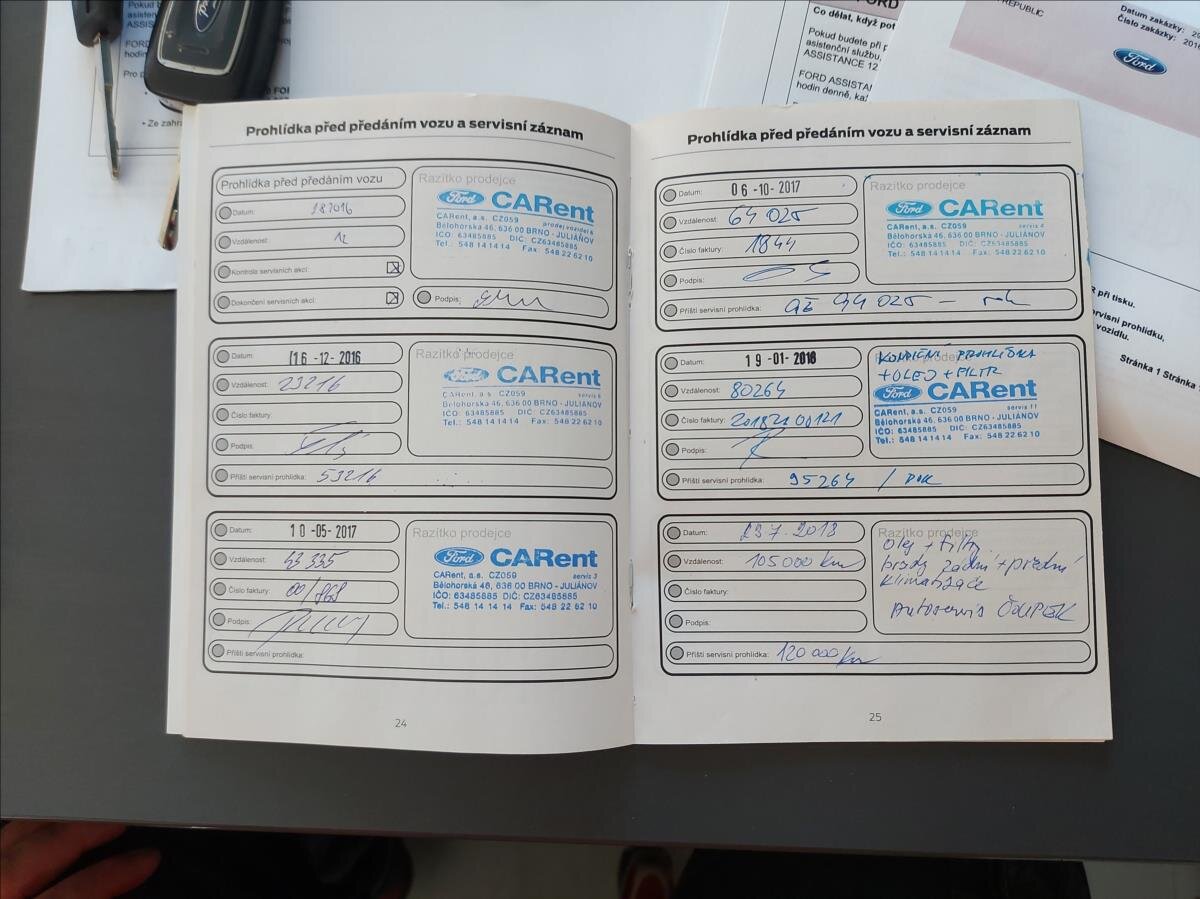 Pokud
asistenční
ASSISTANCE
FORD
hodin
Pro p
• Ze zahra
FORD
Co dělat, když pot
Pokud budete při p
asistenční službu,
ASSISTANCE 12
FORD ASSISTA
hodin denně, ka
REPUBLIC
Datum zakázky: 29
Číslo zakázky: 2016
Ford
R při tisku.
ervisní prohlídku,
vozidlu.
Stránka 1 Stránka
Prohlídka před předáním vozu a servisní záznam
Prohlídka před předáním vozu
Datum:
Vzdálenost: 12
Kontrola servisních akcí:
Dokončení servisních akcí:
Razítko prodejce
Ford CARent
CARent, a.s. CZ059 prodej vozidel 6
Bělohorská 46, 636 00 BRNO - JULIÁNOV
IČO: 63485885 DIČ: CZ63485885
Tel.: 548 14 14 14 Fax: 548 22 62 10
Podpis:
Datum: 16 -12- 2016
Vzdálenost: 29216
Číslo faktury:
Podpis:
Příští servisní prohlídka: 59216
Razítko prodejce
Ford CARent
CARent, a.s. CZ059 servis 6
Bělohorská 46, 636 00 BRNO - JULIÁNOV
IČO: 63485885 DIČ: CZ63485885
Tel.: 548 14 14 14 Fax: 548 22 62 10
Datum: 10 -05- 2017
Vzdálenost: 43 335
Číslo faktury: 00/868
Podpis:
Příští servisní prohlídka:
Razítko prodejce
Ford CARent
CARent, a.s. CZ059 servis 3
Bělohorská 46, 636 00 BRNO - JULIÁNOV
IČO: 63485885 DIČ: CZ63485885
Tel.: 548 14 14 14 Fax: 548 22 62 10
24
Prohlídka před předáním vozu a servisní záznam
Datum: 06 -10- 2017
Vzdálenost: 64 025
Číslo faktury: 1844
Podpis:
Příští servisní prohlídka: až 94 025 – rok
Razítko prodejce
Ford CARent
CARent, a.s. CZ059 servis 4
Bělohorská 46, 636 00 BRNO - JULIÁNOV
IČO: 63485885 DIČ: CZ63485885
Tel.: 548 14 14 14 Fax: 548 22 62 10
Datum: 19 -01- 2018
Vzdálenost: 80264
Číslo faktury: 20182100121
Podpis:
Příští servisní prohlídka: 95264 / ROK
Razítko prodejce
KONDIČNÍ PROHLÍDKA
+ OLEJ + FILTR
Ford CARent
CARent, a.s. CZ059 servis 11
Bělohorská 46, 636 00 BRNO - JULIÁNOV
IČO: 63485885 DIČ: CZ63485885
Tel.: 548 14 14 14 Fax: 548 22 62 10
Datum: 23.7.2018
Vzdálenost: 105000 km
Číslo faktury:
Podpis:
Příští servisní prohlídka: 120 000 km
Razítko prodejce
olej + filtry
brzdy zadní + přední
klimatizace
Autoservis ČOUPEK
25